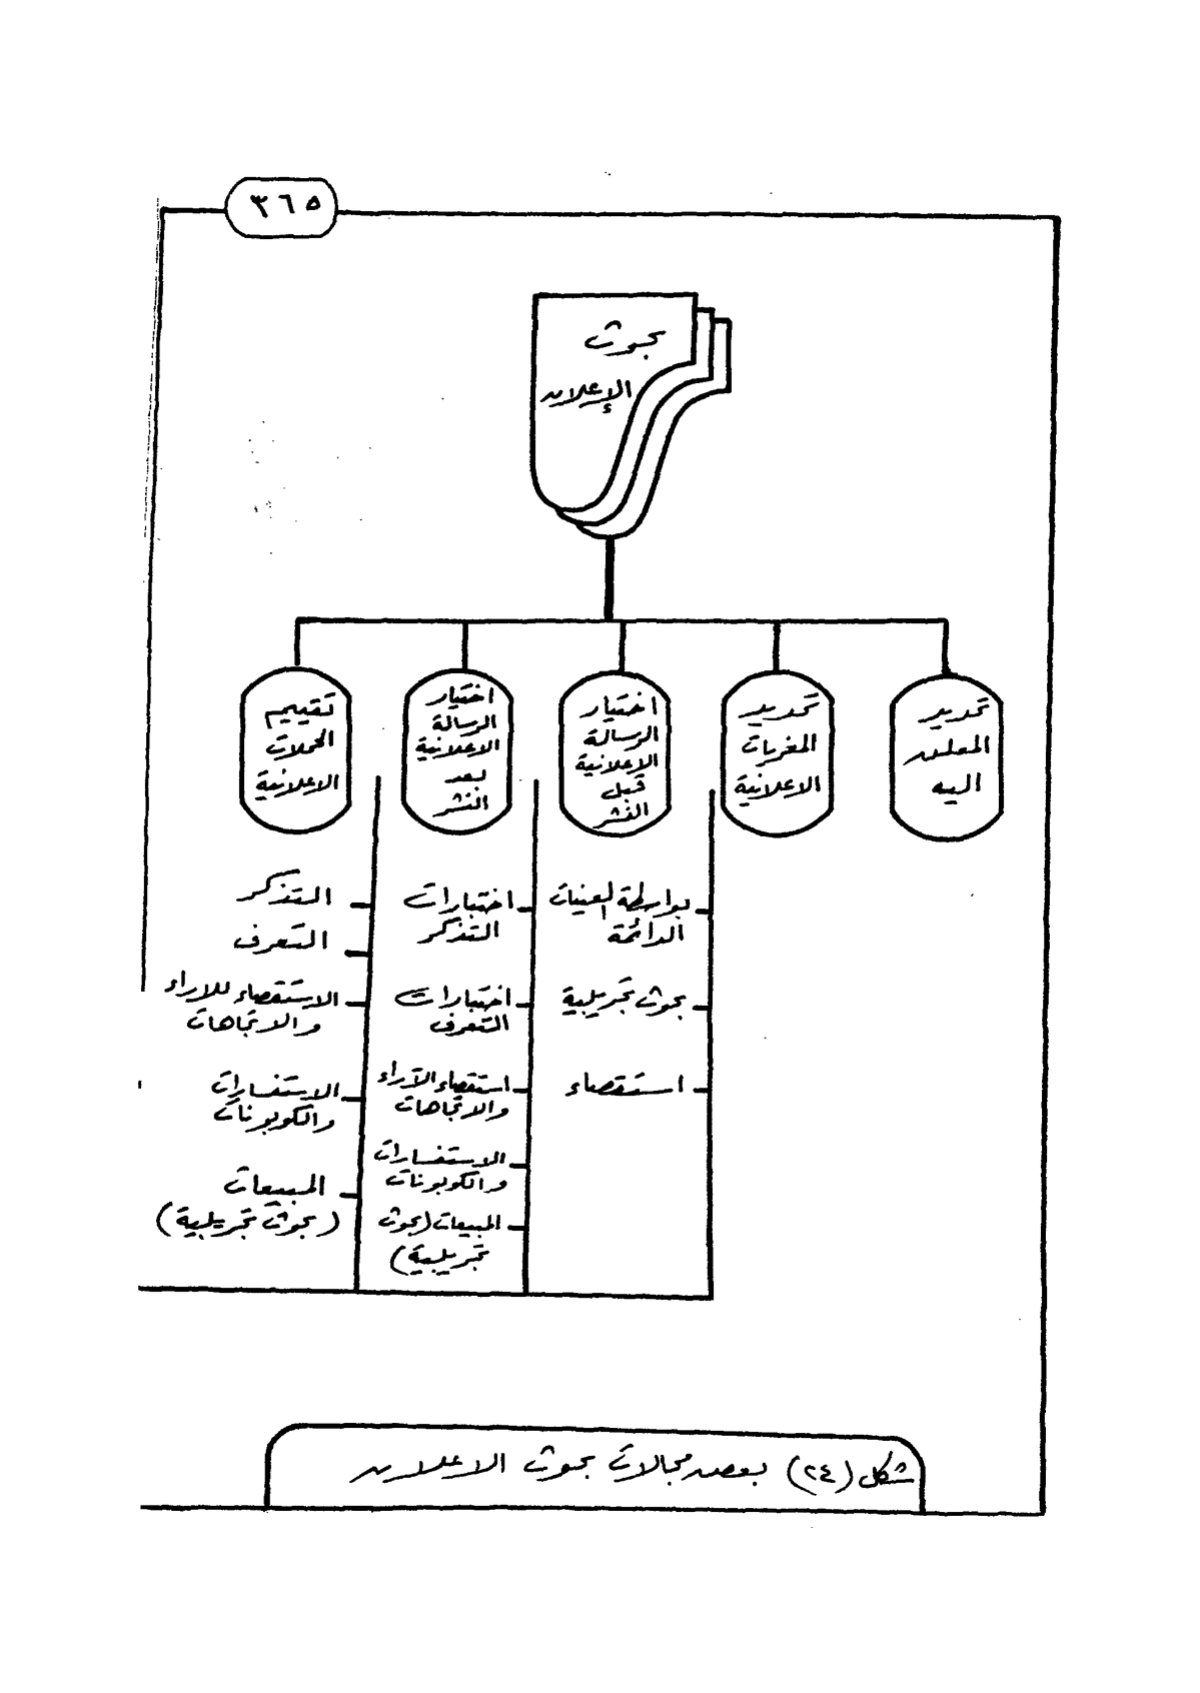 ٣٦٥
بحوث
الإعلان
تحديد
المعلن
اليه
تحديد
المغريات
الاعلانية
اختيار
الرسالة
الإعلانية
قبل
النشر
اختيار
الرسالة
الاعلانية
بعد
النشر
تقييم
الحملات
الاعلانية
بواسطة العينات
الدائمة
بحوث تجريبية
استقصاء
اختبارات
التذكر
اختبارات
التعرف
استقصاء الآراء
والاتجاهات
الاستفسارات
والكوبونات
المبيعات (بحوث
تجريبية)
التذكر
التعرف
الاستقصاء للاراء
والاتجاهات
الاستفسارات
والكوبونات
المبيعات
(بحوث تجريبية)
شكل (٢٤) بعض مجالات بحوث الاعلان